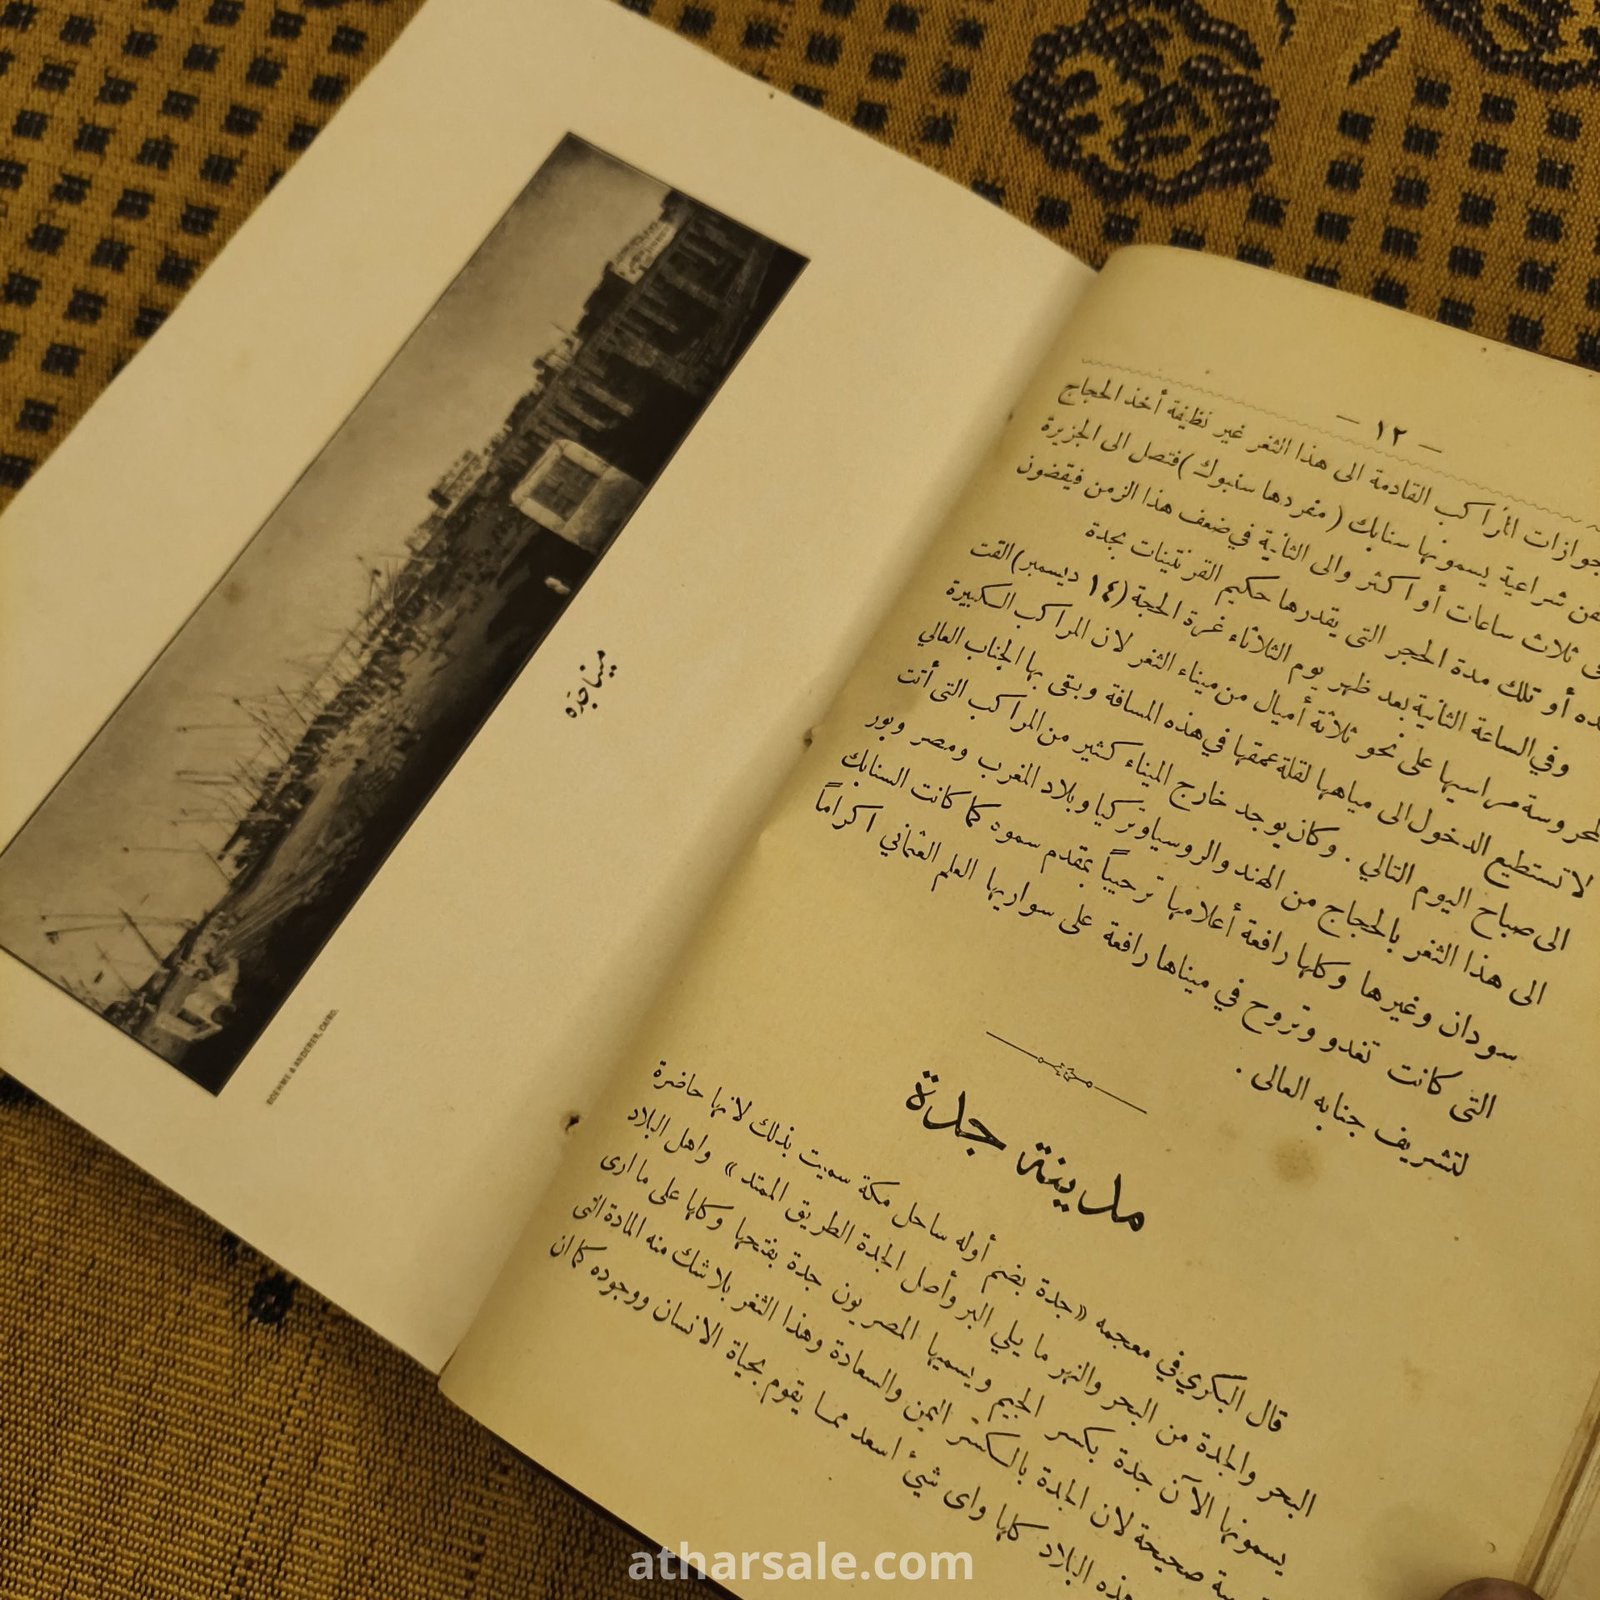 — ١٢ —
جوازات المراكب القادمة الى هذا الثغر غير نظيفة أخذ الحجاج
شراعية يسمونها سنابك ( مفردها سنبوك ) فتصل الى الجزيرة
ثلاث ساعات أو اكثر والى الثانية في ضعف هذا الزمن فيقضون
أو تلك مدة الحجر التى يقدرها حكيم القرنتينات بجدة
وفي الساعة الثانية بعد ظهر يوم الثلاثاء غرة الحجة (١٤ ديسمبر) القت
المحروسة مراسيها على نحو ثلاثة أميال من ميناء الثغر لان المراكب الكبيرة
لا تستطيع الدخول الى مياهها لقلة عمقها في هذه المسافة وبقى بها الجناب العالي
الى صباح اليوم التالي . وكان يوجد خارج الميناء كثير من المراكب التى أتت
الى هذا الثغر بالحجاج من الهند والروسيا وتركيا وبلاد المغرب ومصر وبور
سودان وغيرها وكلها رافعة أعلامها ترحيباً بمقدم سموه كما كانت السنابك
التى كانت تغدو وتروح في ميناها رافعة على سواريها العلم العثماني اكراماً
لتشريف جنابه العالى .
مدينة جدة
قال البكري في معجمه «جدة بضم أوله ساحل مكة سميت بذلك لانها حاضرة
البحر والجدة من البحر والنهر ما يلي البر وأصل الجدة الطريق الممتد» واهل البلاد
يسمونها الآن جدة بكسر الجيم ويسميها المصريون جدة بفتحها وكلها على ما ارى
صحيحة لان الجدة بالكسر اليمن والسعادة وهذا الثغر بلا شك منه المادة التى
هذه البلاد كلها واى شيء اسعد مما يقوم بحياة الانسان ووجوده كما ان
مينا جده
BOEHME & ANDERER, CAIRO.
atharsale.com